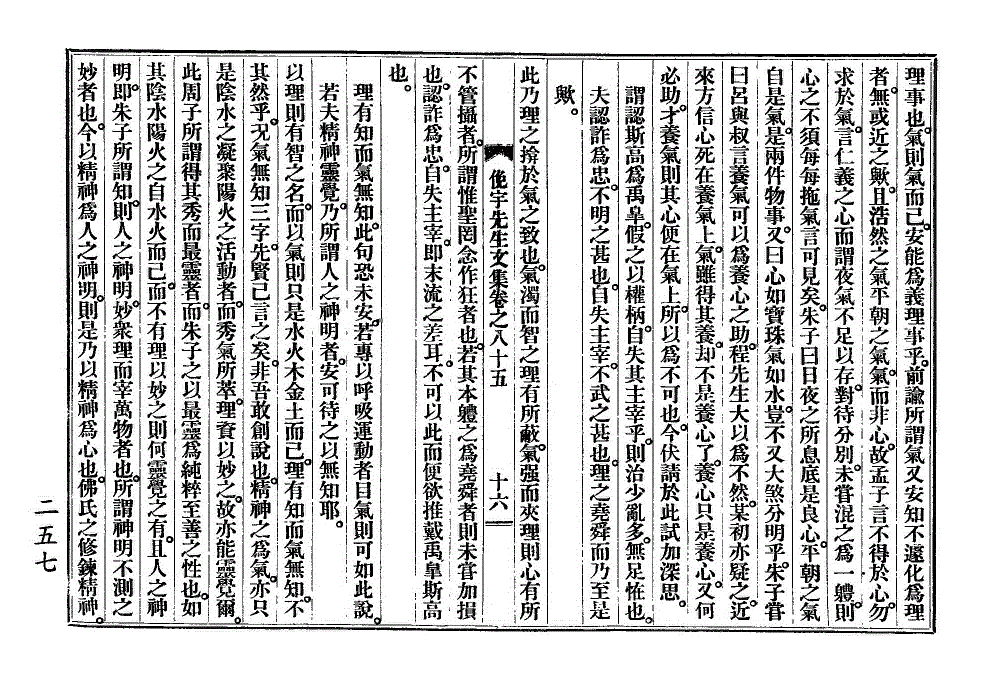 理事也。氣則氣而已。安能爲義理事乎。前諭所謂氣又安知不遽化爲理
者。無或近之歟。且浩然之氣平朝之氣。氣而非心。故孟子言不得於心勿
求於氣。言仁義之心而謂夜氣不足以存。對待分別。未嘗混之爲一軆。則
心之不須每每拖氣言可見矣。朱子曰日夜之所息底是良心。平朝之氣
自是氣。是兩件物事。又曰心如寶珠氣如水。豈不又大煞分明乎。朱子嘗
曰呂與叔言養氣可以爲養心之助。程先生大以爲不然。某初亦疑之。近
來方信心死在養氣上。氣雖得其養。却不是養心了。養心只是養心。又何
必助。才養氣則其心便在氣上。所以爲不可也。今伏請於此試加深思。
謂認斯高爲禹皐。假之以權柄。自失其主宰乎。則治少亂多。無足恠也。
夫認詐爲忠。不明之甚也。自失主宰。不武之甚也。理之堯舜而乃至是
歟。
此乃理之揜於氣之致也。氣濁而智之理有所蔽。氣强而夾理則心有所
俛宇先生文集卷之八十五
十六
不管攝者。所謂惟聖罔念作狂者也。若其本軆之爲堯舜者則未嘗加損
也。認詐爲忠。自失主宰。即末流之差耳。不可以此而便欲推戴禹皐斯高
也。
理有知而氣無知。此句恐未安。若專以呼吸運動者目氣則可如此說。
若夫精神靈覺。乃所謂人之神明者。安可待之以無知耶。
以理則有智之名。而以氣則只是水火木金土而已。理有知而氣無知。不
其然乎。况氣無知三字。先賢已言之矣。非吾敢創說也。精神之爲氣。亦只
是陰水之凝聚陽火之活動者。而秀氣所萃。理資以妙之。故亦能靈覺爾。
此周子所謂得其秀而最靈者。而朱子之以最靈爲純粹至善之性也。如
其陰水陽火之自水火而已。而不有理以妙之則何靈覺之有。且人之神
明。即朱子所謂知。則人之神明。妙衆理而宰萬物者也。所謂神明不測之
妙者也。今以精神爲人之神明。則是乃以精神爲心也。佛氏之修鍊精神。
二五七